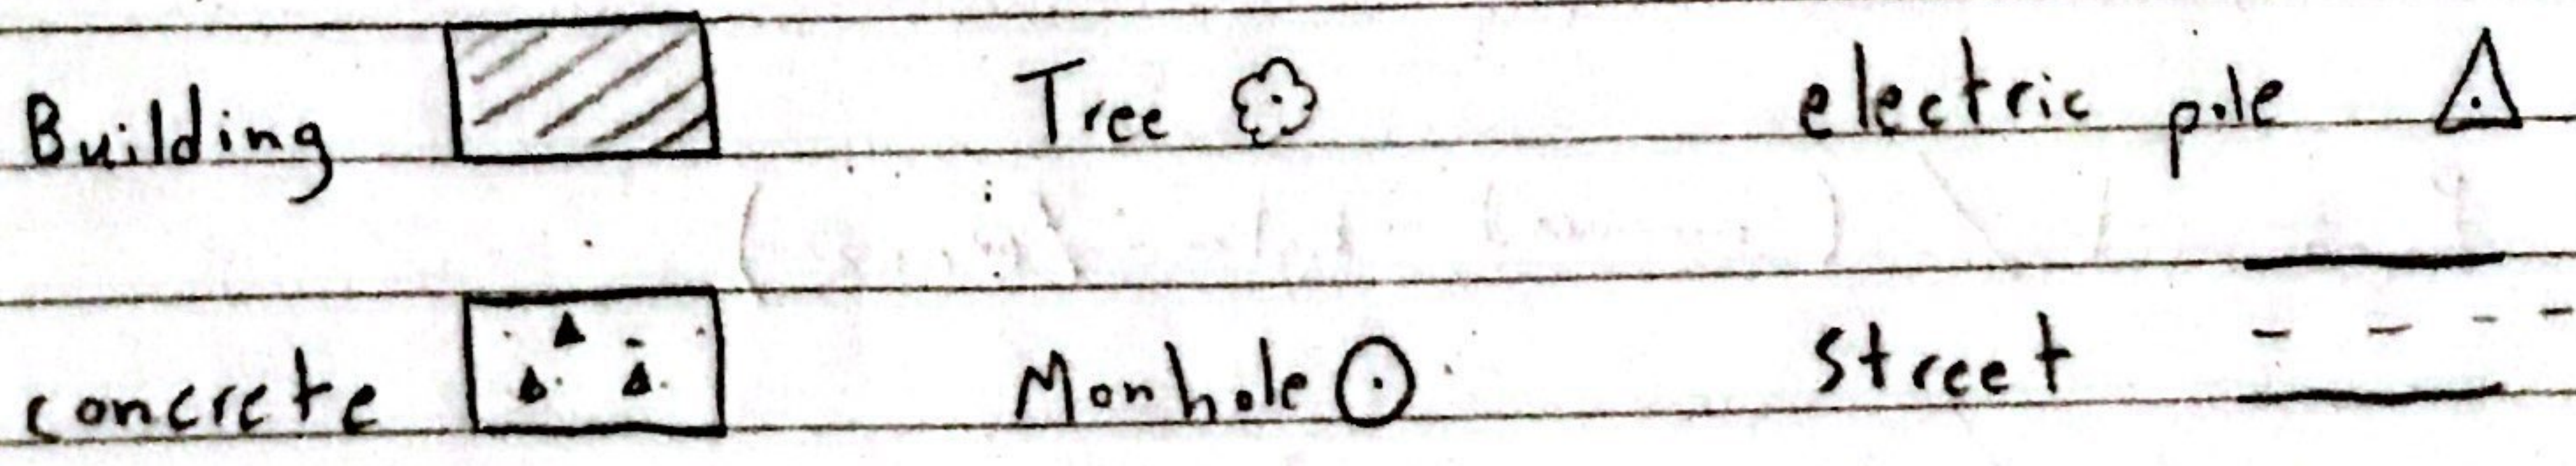 Building Tree electric pole
concrete Monhole street